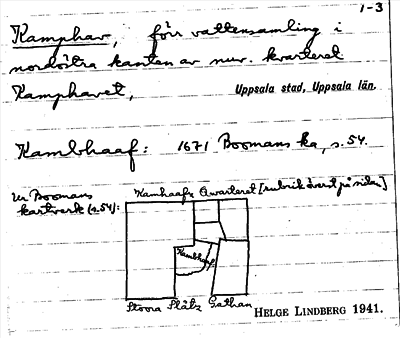 1-3
Kamphav, förr vattensamling i
nordöstra kanten av nuv. kvarteret
Kamphavet,
Uppsala stad, Uppsala län.
Kambhaaf: 1671 Boomans ka, s. 54.
Ur Boomans
kartverk (s. 54):
Kamhaafz Qwarteret [rubrik överst på sidan]
Kambhaaf
Stoora Plåtz Gathan
HELGE LINDBERG 1941.